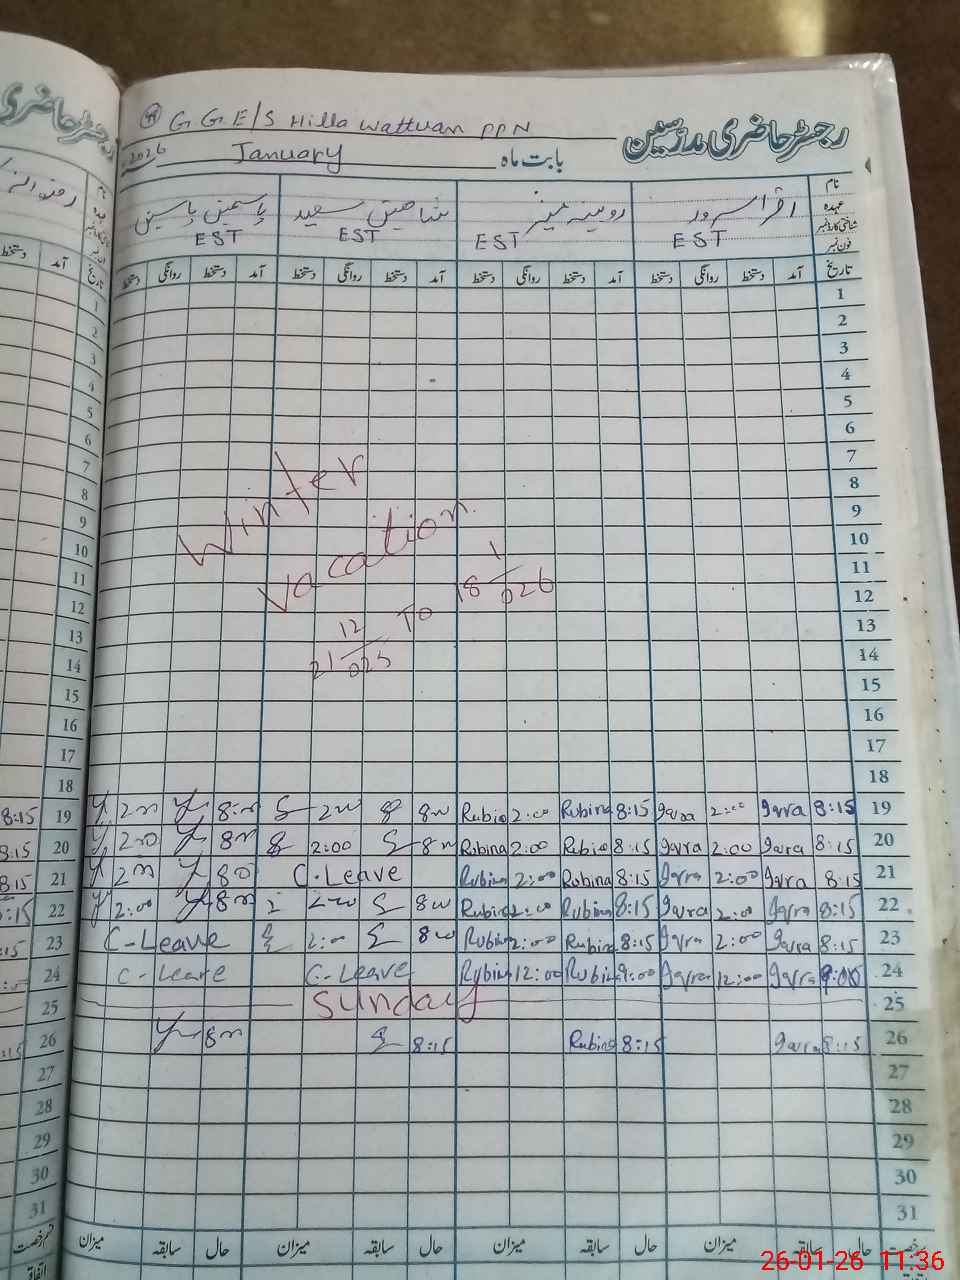 رجسٹر حاضری مدرسین
G G E/S Hilla Wattuan PPN
2026 January بابت ماہ
نام اقراء سرور روبینہ منیر شاھین سعید یاسمین یاسین
عہدہ
شناختی کارڈ نمبر EST EST EST EST
فون نمبر
تاریخ آمد دستخط روانگی دستخط آمد دستخط روانگی دستخط آمد دستخط روانگی دستخط آمد دستخط روانگی دستخط
1
2
3
4
5
6
7
8
9
10
11
12
13
14
15
16
17
18
Winter
vacation
21 12/025 To 18 1/026
2:00 8:00 8:00 Rubina 2:00 Rubina 8:15 Iqra 2:00 Iqra 8:15 19
2:00 8:00 2:00 8:00 Rubina 2:00 Rubina 8:15 Iqra 2:00 Iqra 8:15 20
2:00 8:00 C-Leave Rubina 2:00 Rubina 8:15 Iqra 2:00 Iqra 8:15 21
2:00 8:00 2:00 8:00 Rubina 2:00 Rubina 8:15 Iqra 2:00 Iqra 8:15 22
C-Leave 2:00 8:00 Rubina 2:00 Rubina 8:15 Iqra 2:00 Iqra 8:15 23
C-Leave C-Leave Rubina 12:00 Rubina 9:00 Iqra 12:00 Iqra 9:00 24
Sunday 25
8:00 8:15 Rubina 8:15 Iqra 8:15 26
27
28
29
30
31
رخصت حال سابقہ میزان حال سابقہ میزان حال سابقہ میزان حال سابقہ میزان
26-01-26 11:36